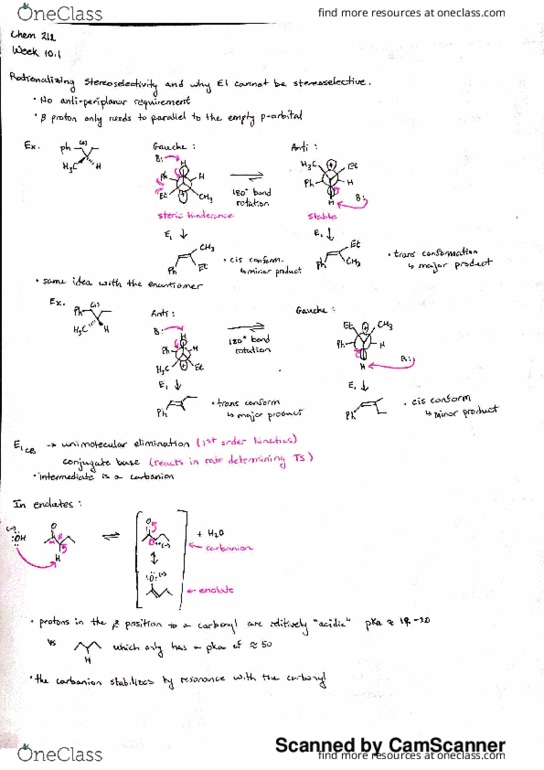 OneClass
find more resources at oneclass.com
Chem 212
Week 10.1
Rationalizing stereoselectivity and why E1 cannot be stereoselective.
• No anti-periplanar requirement
• β proton only needs to parallel to the empty p-orbital
Ex. Ph H₃C H
Gauche:
Anti:
B: H Ph H Et CH₃
180° bond rotation
H₃C Et Ph H H B:
steric hinderance
stable
E₁ ↓
E₁ ↓
CH₃ Ph Et
• cis conform.
↳ minor product
Et Ph CH₃
• trans conformation
↳ major product
• same idea with the enantiomer
Ex. Ph H₃C H
Anti:
Gauche:
B: H Ph H H₃C Et
180° bond rotation
Et CH₃ Ph H H B:
E₁ ↓
E₁ ↓
Ph
• trans conform
↳ major product
Ph
• cis conform
↳ minor product
E1 CB → unimolecular elimination (1st order kinetics)
conjugate base (reacts in rate determining TS)
• intermediate is a carbanion
In enolates:
(-) :OH O H
O (-)
+ H₂O
← carbanion
:O: (-)
← enolate
• protons in the β position to a carbonyl are "acidic" pKa ≈ 18-20
vs H which only has a pKa of ≈ 50
• the carbanion stabilizes by resonance with the carbonyl
OneClass
Scanned by CamScanner
find more resources at oneclass.com